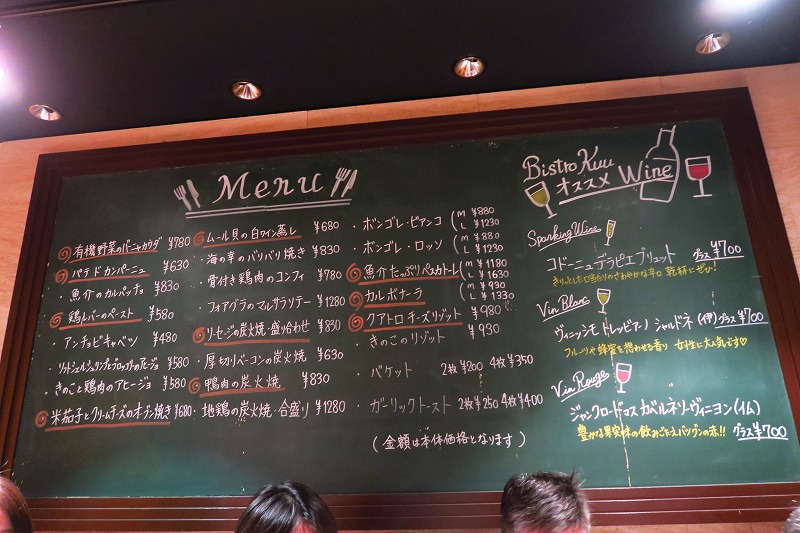 Menu
有機野菜のバーニャカウダ ¥780
パテドカンパーニュ ¥630
・魚介のカルパッチョ ¥830
鶏レバーのペースト ¥580
・アンチョビキャベツ ¥480
¥580
・きのこと鶏肉のアヒージョ ¥580
米茄子とクリームチーズのオーブン焼き ¥680
ムール貝の白ワイン蒸し ¥680
・海の幸のパリパリ焼き ¥830
・骨付き鶏肉のコンフィ ¥780
・フォアグラのマルサラソテー ¥1280
ソーセージの炭火焼・盛り合わせ ¥830
・厚切りベーコンの炭火焼 ¥630
鴨肉の炭火焼 ¥830
・地鶏の炭火焼・合盛り ¥1280
・ボンゴレ・ビアンコ (M ¥880 L ¥1230
・ボンゴレ・ロッソ (M ¥880 L ¥1230
魚介たっぷりペスカトーレ (M ¥1180 L ¥1630
カルボナーラ (M ¥930 L ¥1330
クアトロチーズリゾット ¥980
・きのこのリゾット ¥930
・バケット 2枚 ¥200 4枚 ¥350
・ガーリックトースト 2枚 ¥250 4枚 ¥400
(金額は本体価格となります)
Bistro Kuu
オススメ Wine
Sparking Wine
コドーニュ デラピエ ブリュット グラス ¥700
きりっとした口当たりのさわやかな辛口 乾杯にぜひ!
Vin Blanc
ヴェニッシモ トレッビアーノ シャルドネ (伊) グラス ¥700
フルーツや蜂蜜を想わせる香り 女性に大人気です♡
Vin Rouge
ジャンクロードマス カベルネソーヴィニヨン (仏)
豊かな果実味の飲みごたえバツグンの赤!! グラス ¥700